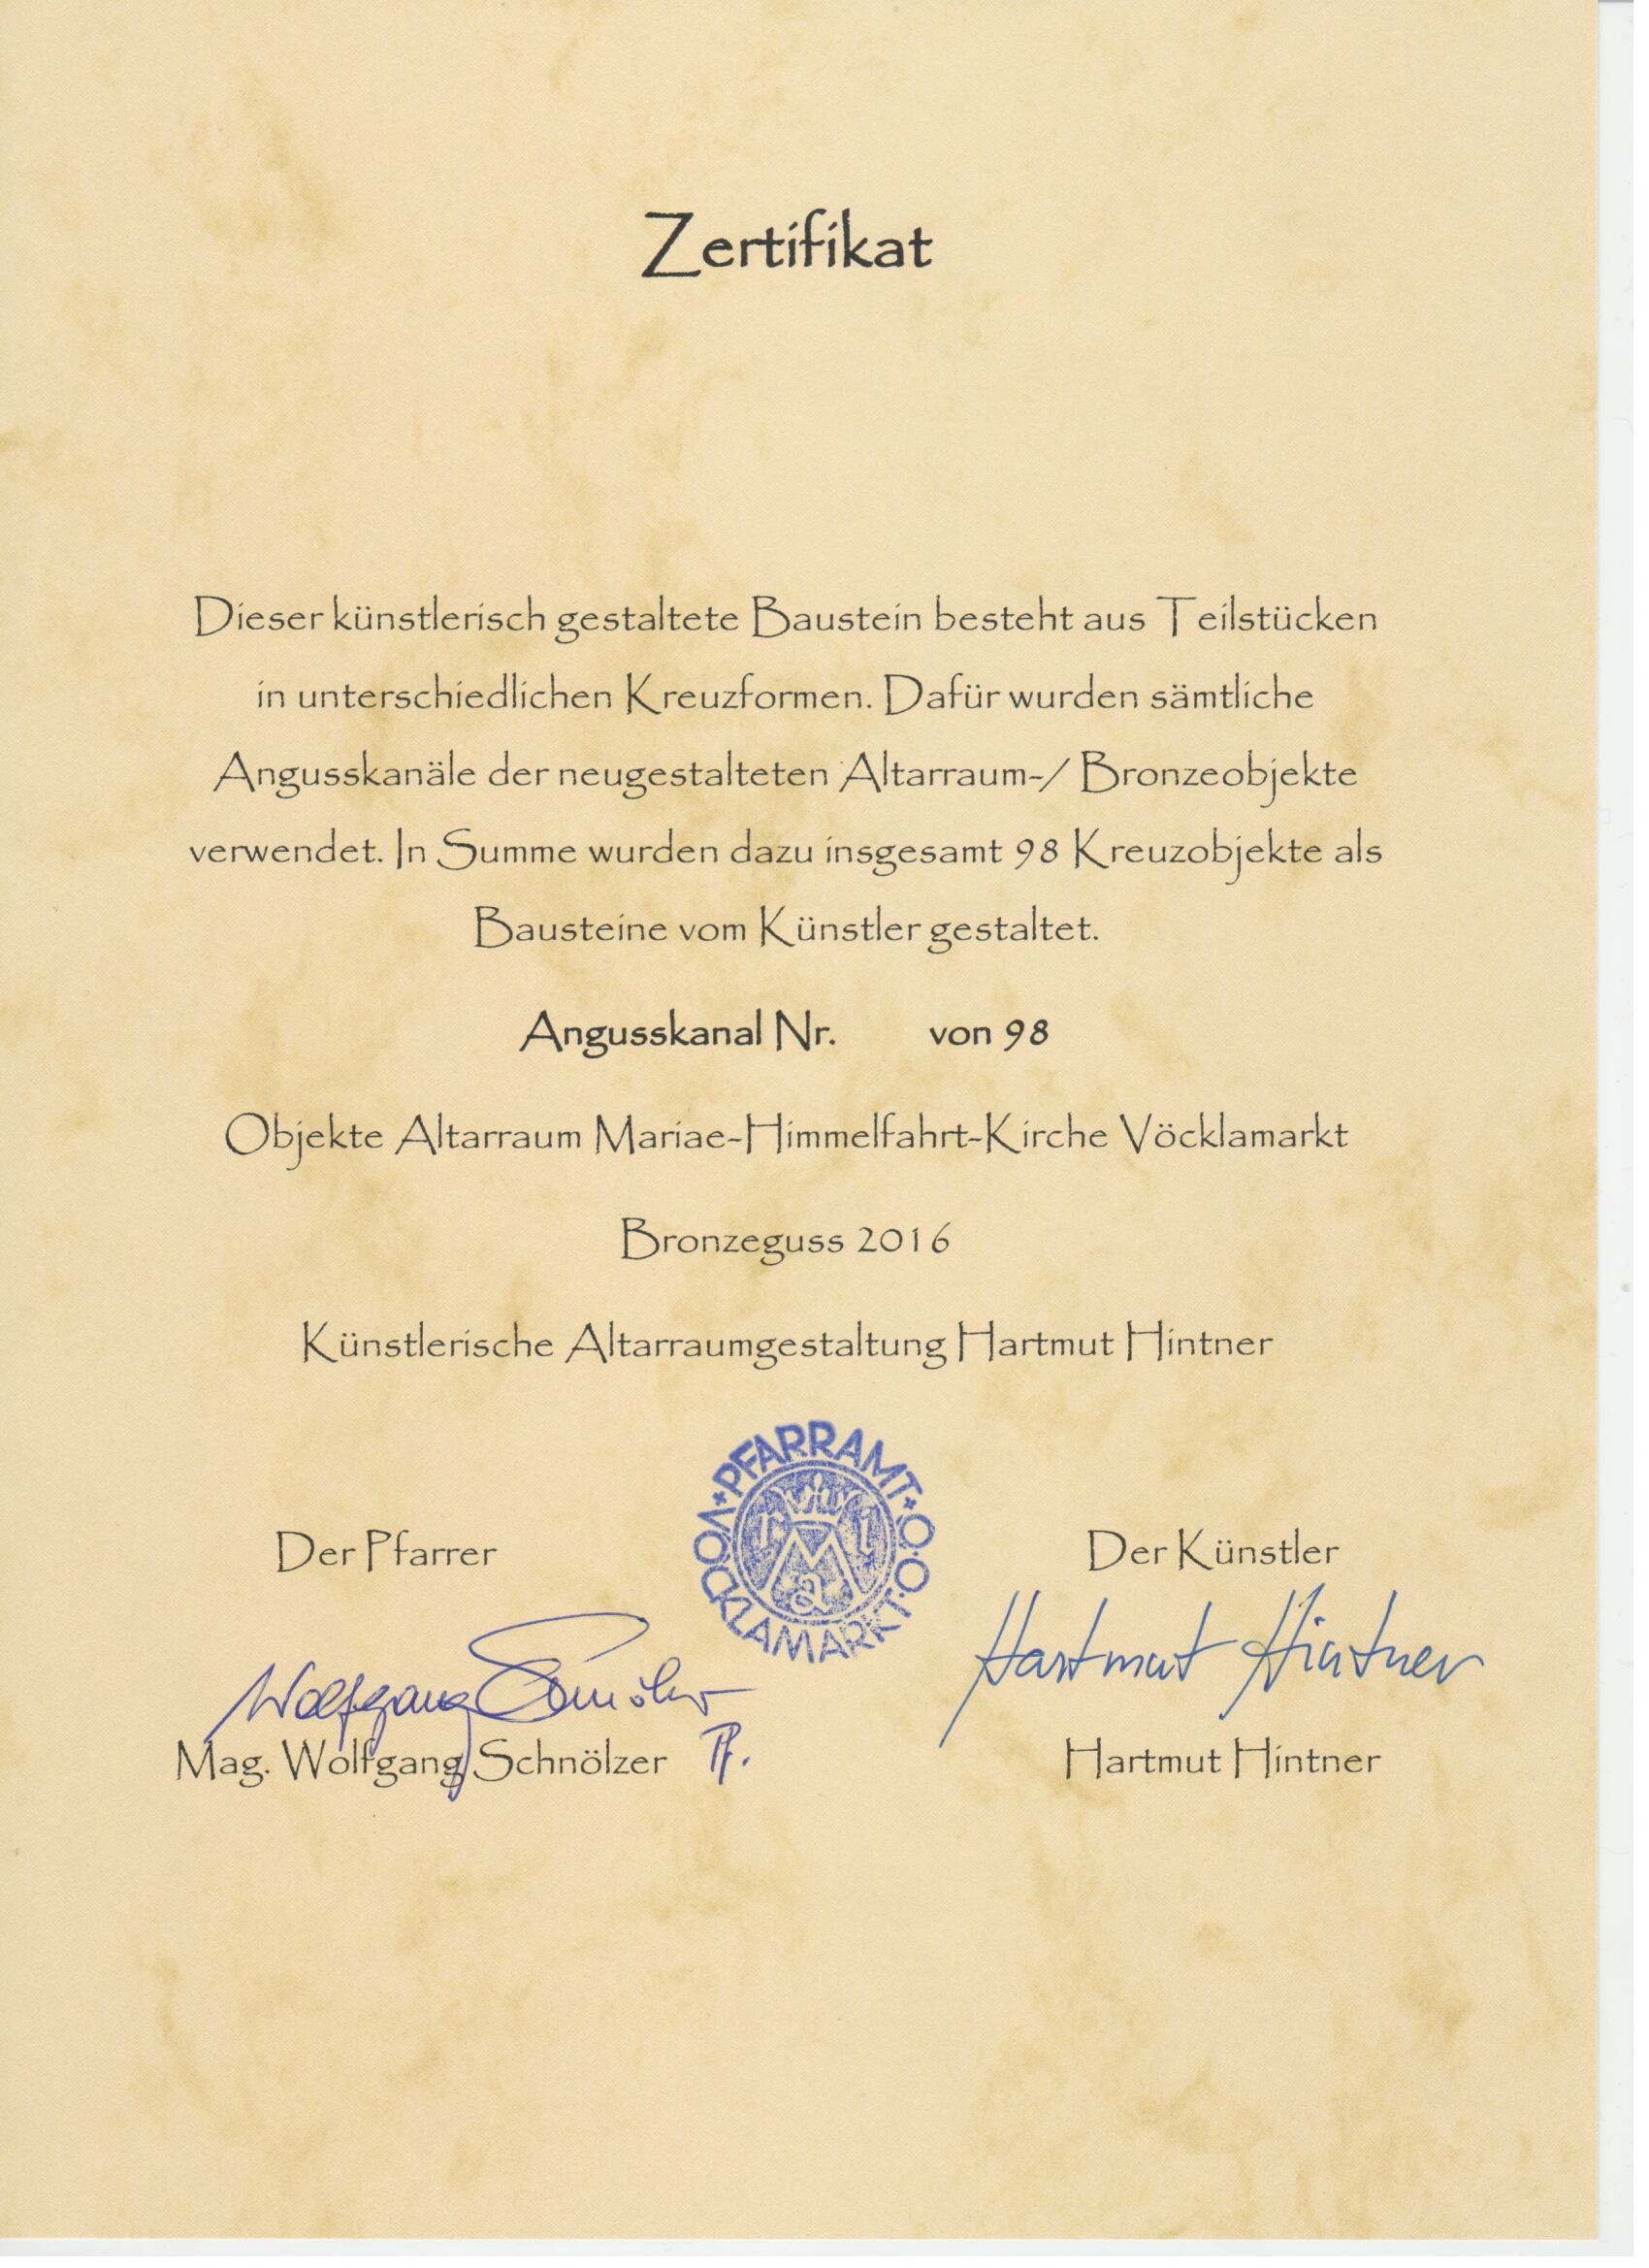 Zertifikat
Dieser künstlerisch gestaltete Baustein besteht aus Teilstücken
in unterschiedlichen Kreuzformen. Dafür wurden sämtliche
Angusskanäle der neugestalteten Altarraum-/ Bronzeobjekte
verwendet. In Summe wurden dazu insgesamt 98 Kreuzobjekte als
Bausteine vom Künstler gestaltet.
Angusskanal Nr. von 98
Objekte Altarraum Mariae-Himmelfahrt-Kirche Vöcklamarkt
Bronzeguss 2016
Künstlerische Altarraumgestaltung Hartmut Hintner
PFARRAMT
VÖCKLAMARKT.O.Ö.
Der Pfarrer
Der Künstler
Wolfgang Schnölzer
Pf.
Hartmut Hintner
Mag. Wolfgang Schnölzer
Hartmut Hintner